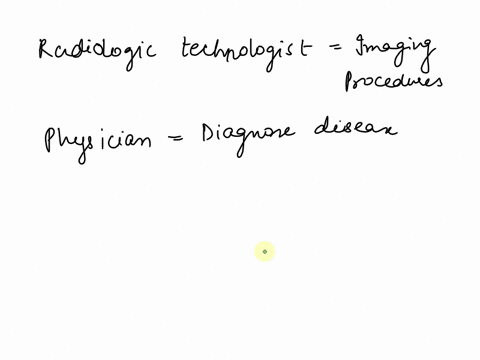 Radiologic technologist = Imaging
Procedures
Physician = Diagnose disease